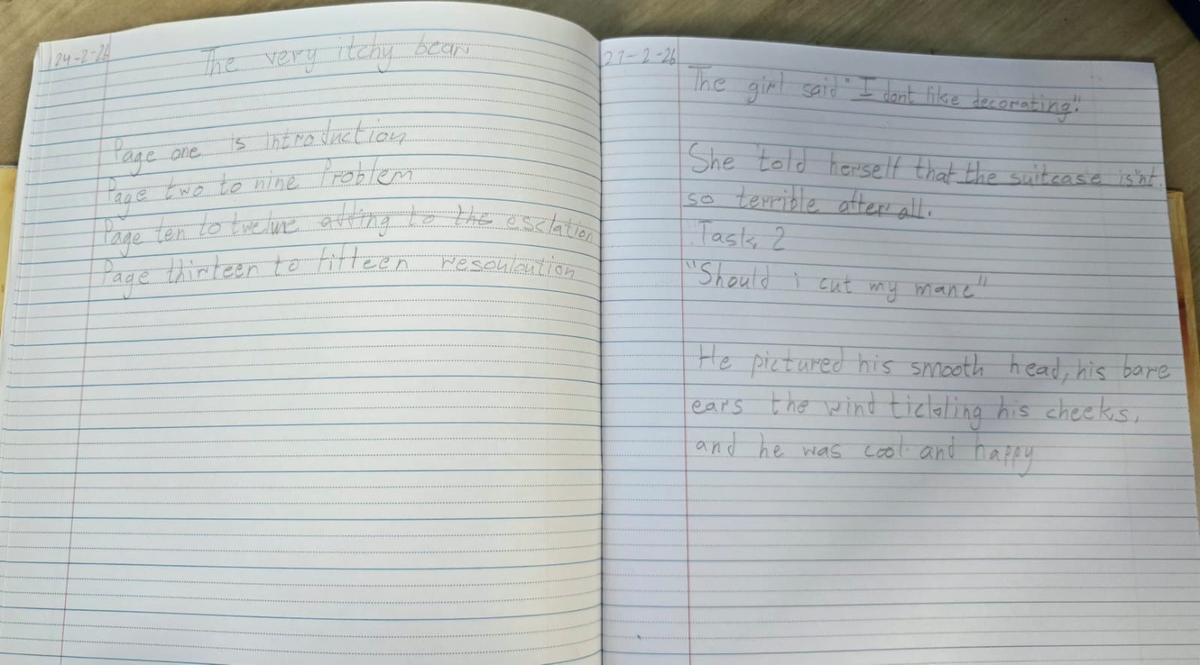 24-2-26
The very itchy bear
Page one is introduction
Page two to nine Problem
Page ten to twelve adding to the esclation
Page thirteen to fifteen resouloution
27-2-26
The girl said "I dont like decorating".
She told herself that the suitcase is'nt
so terrible after all.
Task 2
"Should i cut my mane"
He pictured his smooth head, his bare
ears the wind tickling his cheeks,
and he was cool and happy